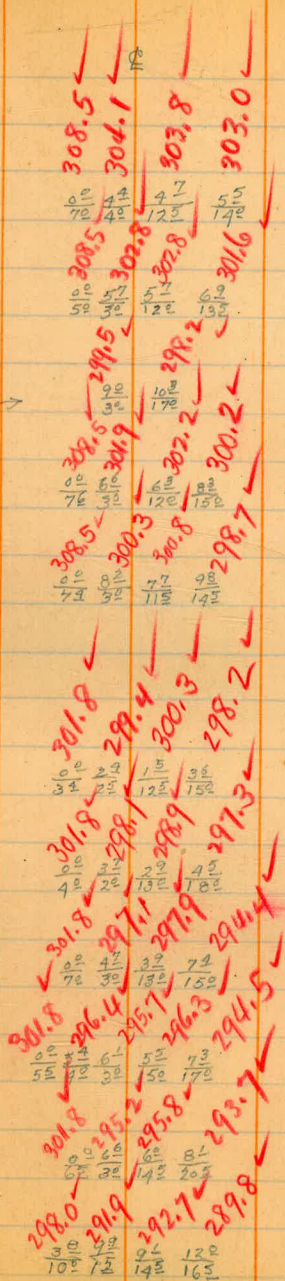 ℄
308.5 304.1 303.8 303.0
0⁰/7⁰ 4⁴/4⁰ 4⁷/12⁵ 5⁵/14⁰
308.5 302.8 302.8 301.6
0⁰/5⁰ 5⁷/3⁰ 5⁷/12⁰ 6⁹/13⁵
299.5 298.2
9⁰/3⁰ 10³/17⁰
308.5 301.9 302.2 300.2
0⁰/7⁶ 6⁶/3⁵ 6³/12⁰ 8³/15⁰
308.5 300.3 300.8 298.7
0⁰/7⁴ 8²/3⁰ 7⁷/11⁵ 9⁸/14⁵
301.8 299.4 300.3 298.2
0⁰/3⁴ 2⁴/2⁵ 1⁵/12⁵ 3⁶/15⁰
301.8 298.1 298.9 297.3
0⁰/4⁰ 3⁷/2⁰ 2⁹/13⁰ 4⁵/18⁰
301.8 297.1 297.9 294.4
0⁰/7⁰ 4⁷/3⁰ 3⁹/13⁰ 7⁴/15⁰
301.8 296.4 295.7 296.3 294.5
0⁰/5⁵ 5⁴/9⁰ 6¹/3⁰ 5⁵/15⁰ 7³/17⁰
301.8 295.2 295.8 293.7
0⁰/6⁵ 6⁶/3⁰ 6⁰/14⁵ 8¹/20⁵
298.0 291.9 292.7 289.8
3⁸/10⁰ 9⁹/1² 9¹/14⁵ 12⁰/16⁵